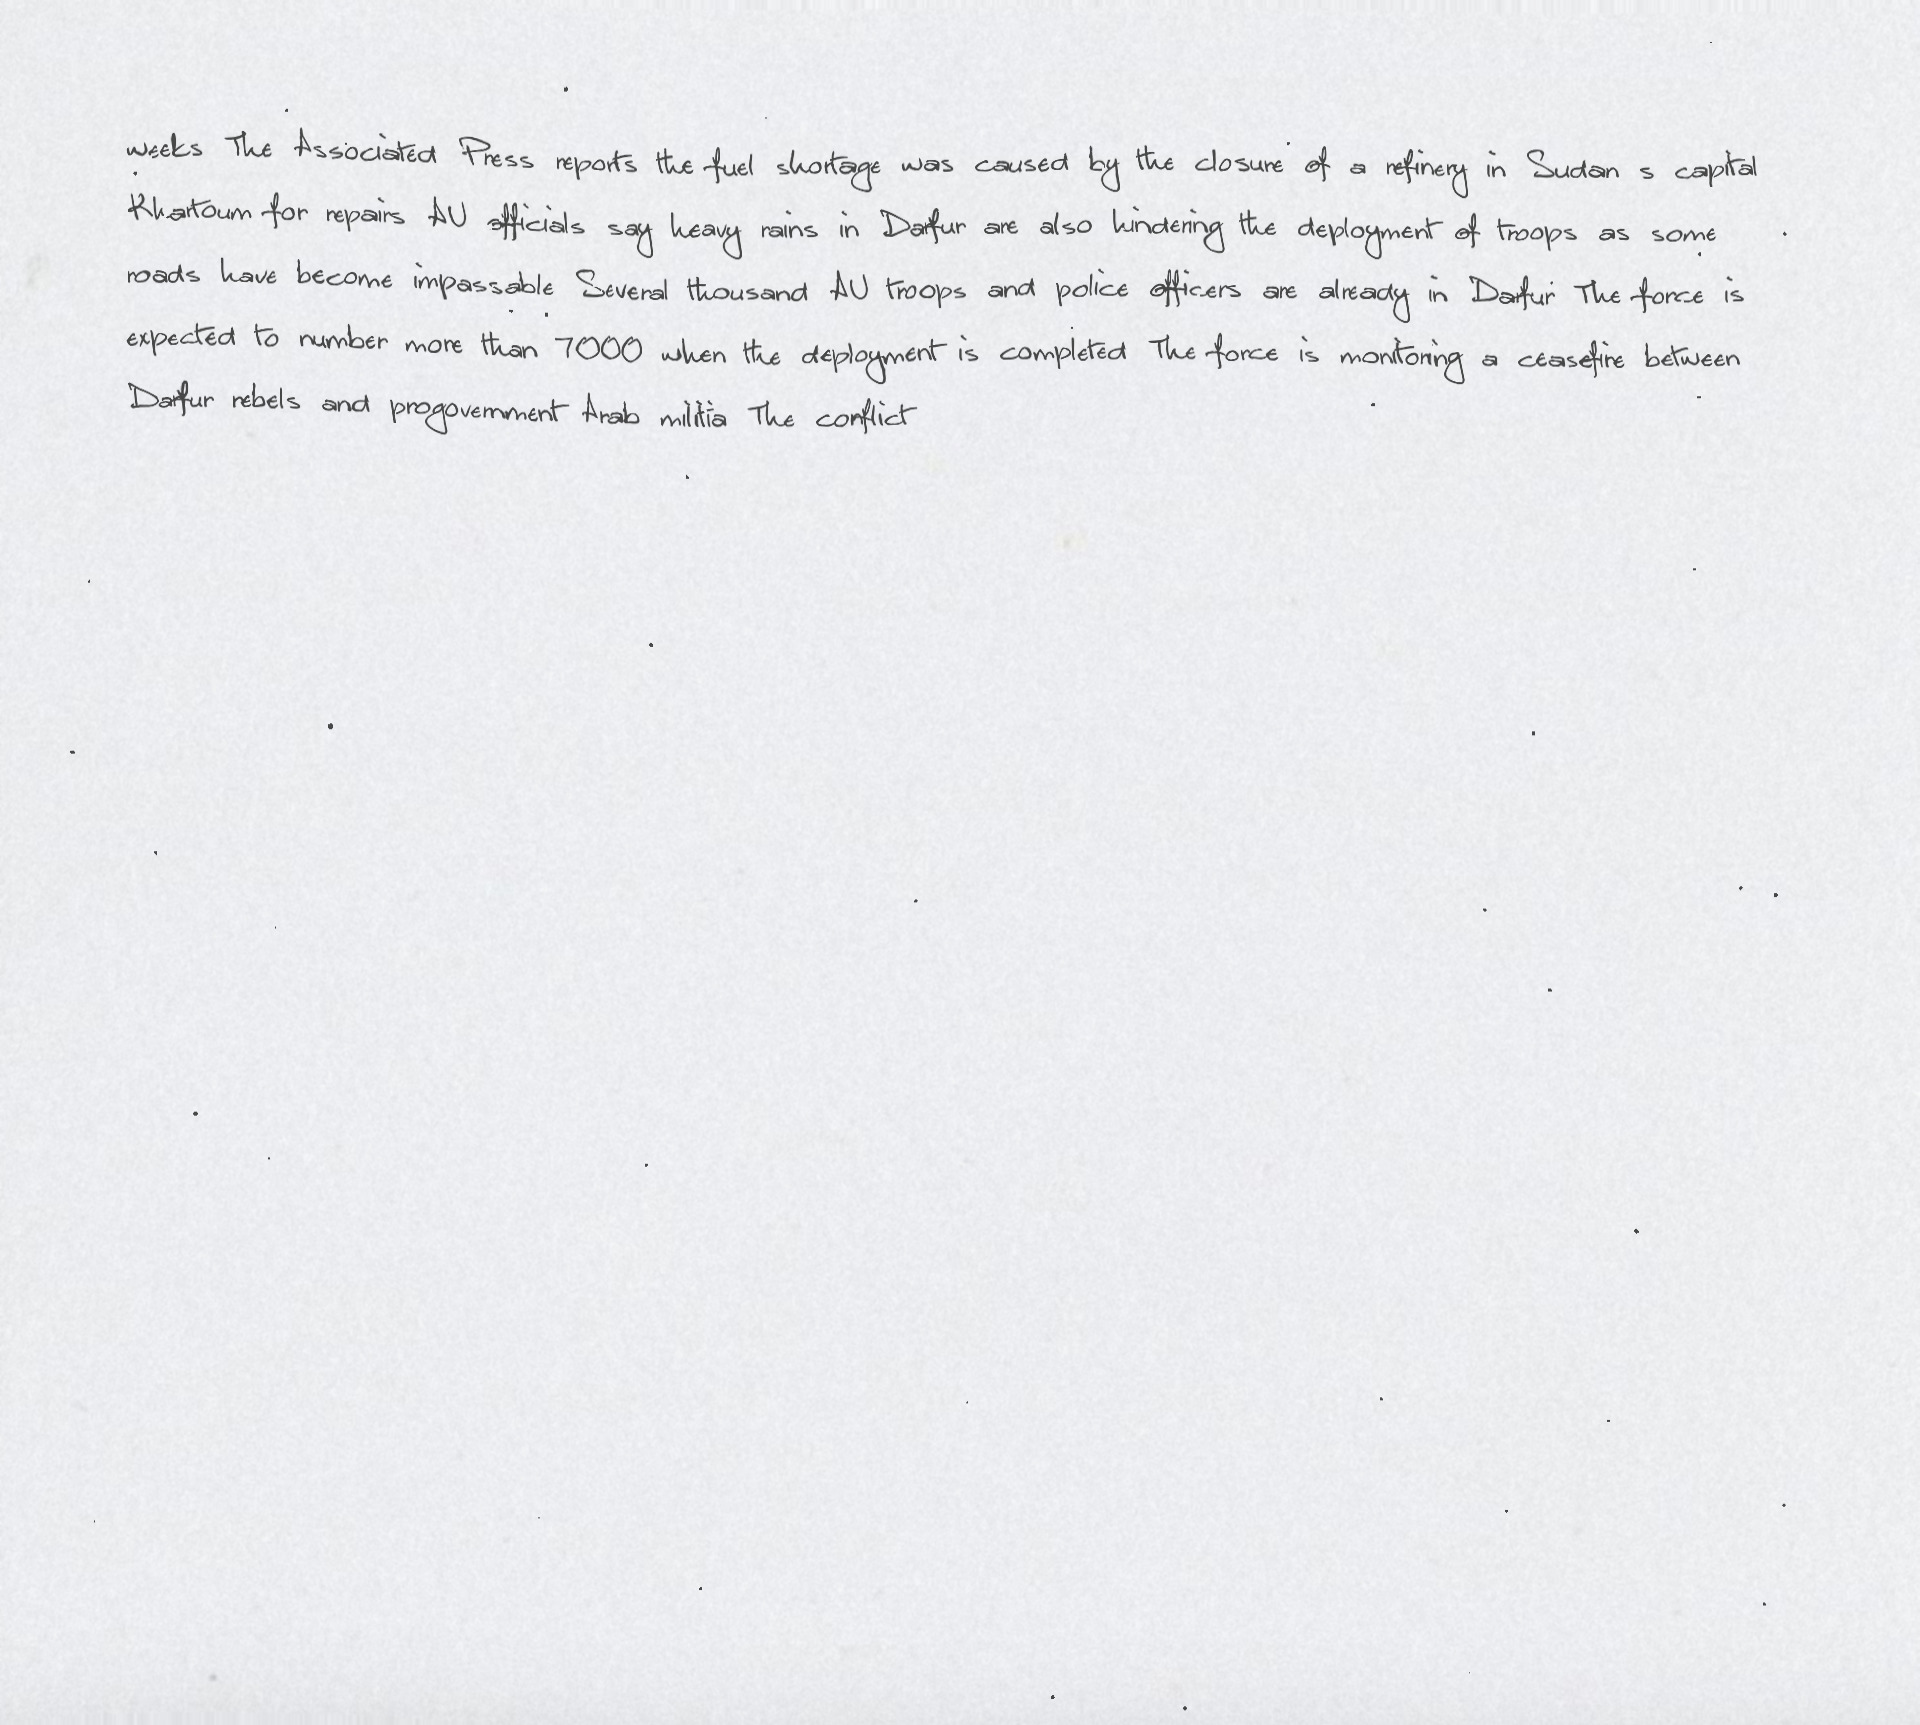 weeks The Associated Press reports the fuel shortage was caused by the closure of a refinery in Sudan s capital
Khartoum for repairs AU officials say heavy rains in Darfur are also hindering the deployment of troops as some
roads have become impassable Several thousand AU troops and police officers are already in Darfur The force is
expected to number more than 7000 when the deployment is completed The force is monitoring a ceasefire between
Darfur rebels and progovernment Arab militia The conflict